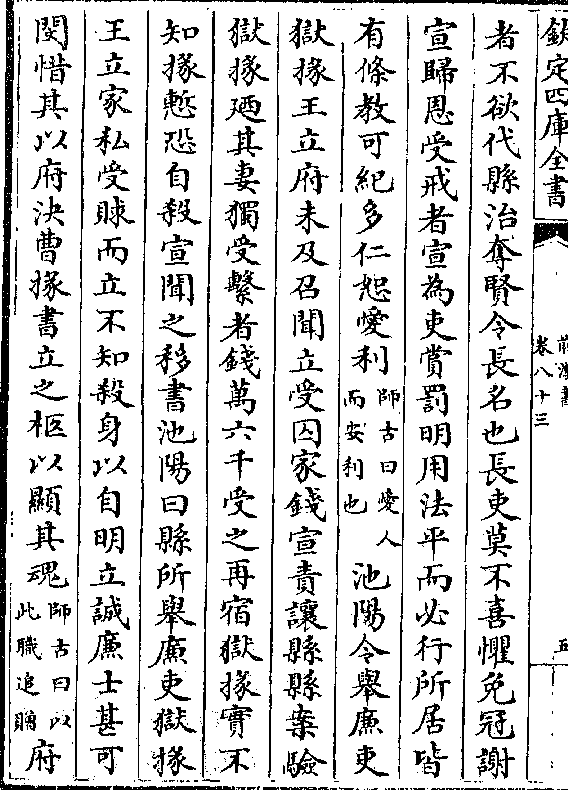 欽定四庫全書
前漢書
卷八十三
五
者不欲代縣治奪賢令長名也長吏莫不喜懼免冠謝
宣歸恩受戒者宣為吏賞罰明用法平而必行所居皆
有條教可紀多仁恕愛利師古曰愛人而安利也池陽令舉廉吏
獄掾王立府未及召聞立受囚家錢宣責讓縣縣案驗
獄掾廼其妻獨受繫者錢萬六千受之再宿獄掾實不
知掾慙恐自殺宣聞之移書池陽曰縣所舉廉吏獄掾
王立家私受賕而立不知殺身以自明立誠廉士甚可
閔惜其以府決曹掾書立之柩以顯其魂師古曰以此職追贈府